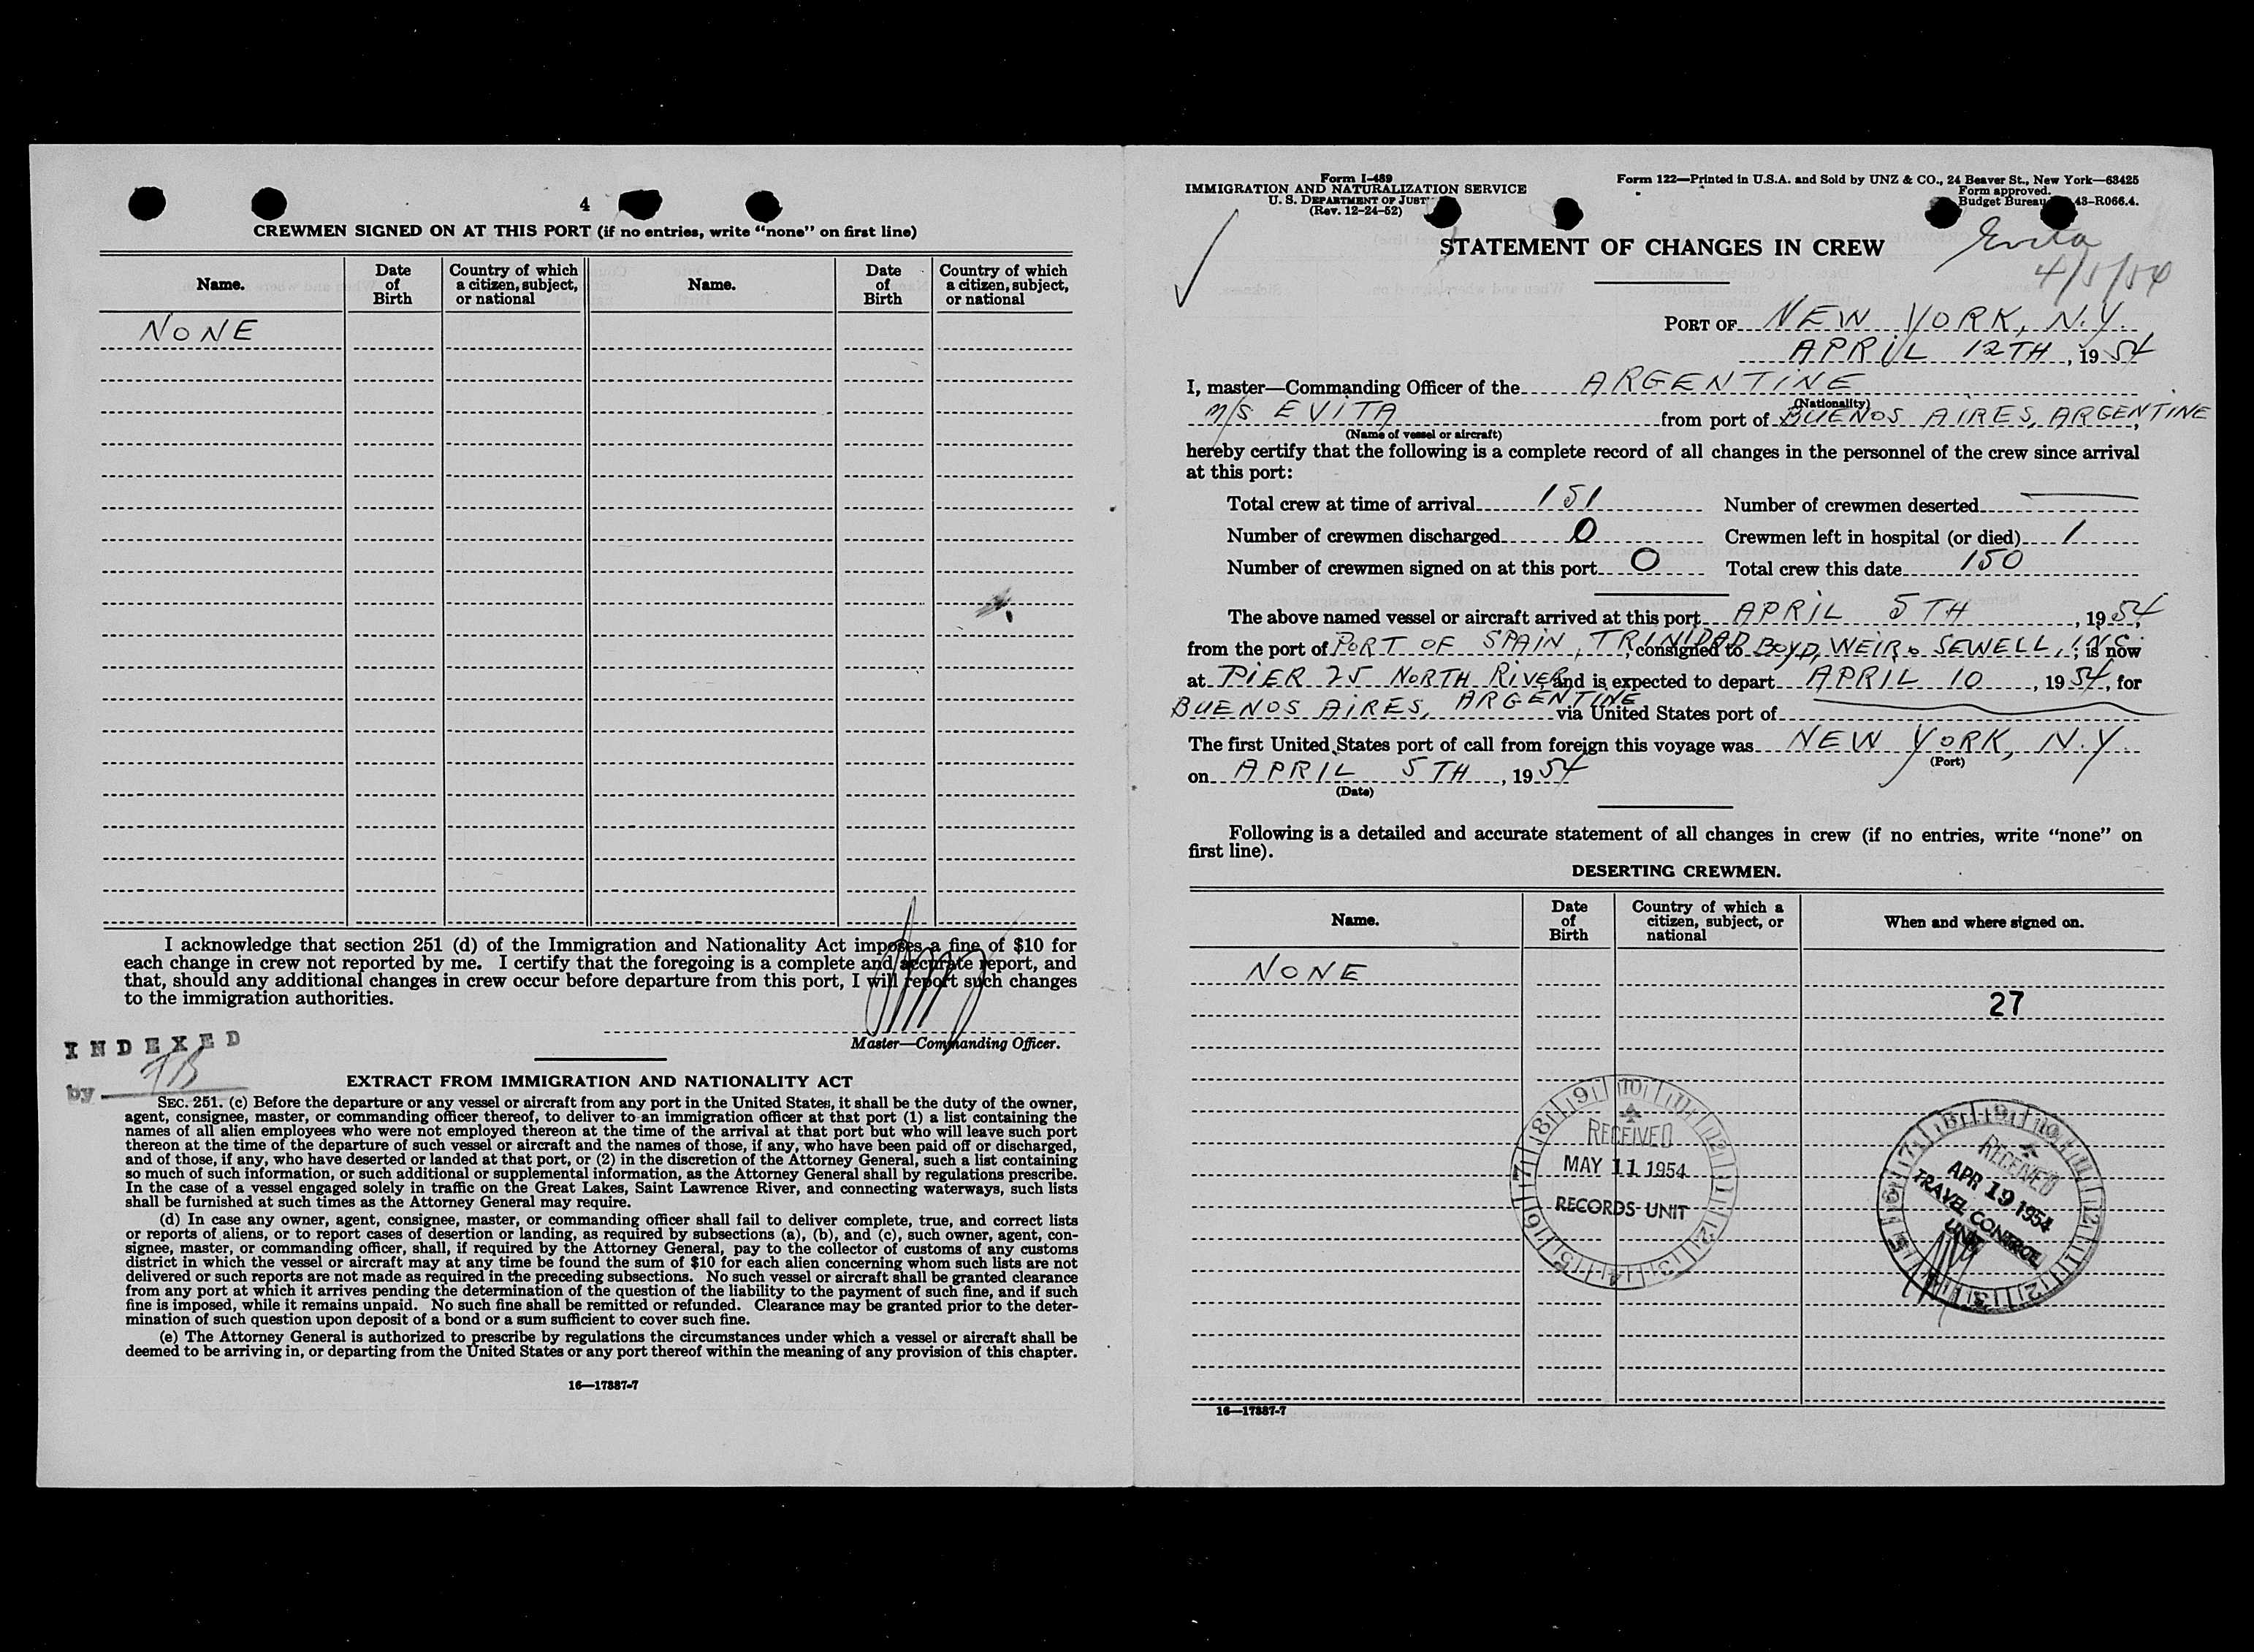 4
CREWMEN SIGNED ON AT THIS PORT (if no entries, write "none" on first line)
Name. Date of Birth Country of which a citizen, subject, or national Name. Date of Birth Country of which a citizen, subject, or national
NONE
I acknowledge that section 251 (d) of the Immigration and Nationality Act imposes a fine of $10 for
each change in crew not reported by me. I certify that the foregoing is a complete and accurate report, and
that, should any additional changes in crew occur before departure from this port, I will report such changes
to the immigration authorities.
Master—Commanding Officer.
INDEXED
by
EXTRACT FROM IMMIGRATION AND NATIONALITY ACT
SEC. 251. (c) Before the departure or any vessel or aircraft from any port in the United States, it shall be the duty of the owner,
agent, consignee, master, or commanding officer thereof, to deliver to an immigration officer at that port (1) a list containing the
names of all alien employees who were not employed thereon at the time of the arrival at that port but who will leave such port
thereon at the time of the departure of such vessel or aircraft and the names of those, if any, who have been paid off or discharged,
and of those, if any, who have deserted or landed at that port, or (2) in the discretion of the Attorney General, such a list containing
so much of such information, or such additional or supplemental information, as the Attorney General shall by regulations prescribe.
In the case of a vessel engaged solely in traffic on the Great Lakes, Saint Lawrence River, and connecting waterways, such lists
shall be furnished at such times as the Attorney General may require.
(d) In case any owner, agent, consignee, master, or commanding officer shall fail to deliver complete, true, and correct lists
or reports of aliens, or to report cases of desertion or landing, as required by subsections (a), (b), and (c), such owner, agent, con-
signee, master, or commanding officer, shall, if required by the Attorney General, pay to the collector of customs of any customs
district in which the vessel or aircraft may at any time be found the sum of $10 for each alien concerning whom such lists are not
delivered or such reports are not made as required in the preceding subsections. No such vessel or aircraft shall be granted clearance
from any port at which it arrives pending the determination of the question of the liability to the payment of such fine, and if such
fine is imposed, while it remains unpaid. No such fine shall be remitted or refunded. Clearance may be granted prior to the deter-
mination of such question upon deposit of a bond or a sum sufficient to cover such fine.
(e) The Attorney General is authorized to prescribe by regulations the circumstances under which a vessel or aircraft shall be
deemed to be arriving in, or departing from the United States or any port thereof within the meaning of any provision of this chapter.
16—17887-7
Form I-489
IMMIGRATION AND NATURALIZATION SERVICE
U. S. DEPARTMENT OF JUST
(Rev. 12-24-52)
Form 122—Printed in U.S.A. and Sold by UNZ & CO., 24 Beaver St., New York—63425
Form approved.
Budget Bureau 43-R066.4.
STATEMENT OF CHANGES IN CREW
Evita
4/5/54
PORT OF NEW YORK, N.Y.
APRIL 12TH, 1954
I, master—Commanding Officer of the ARGENTINE
(Nationality)
M/S EVITA from port of BUENOS AIRES, ARGENTINE,
(Name of vessel or aircraft)
hereby certify that the following is a complete record of all changes in the personnel of the crew since arrival
at this port:
Total crew at time of arrival 151 Number of crewmen deserted
Number of crewmen discharged 0 Crewmen left in hospital (or died) 1
Number of crewmen signed on at this port 0 Total crew this date 150
The above named vessel or aircraft arrived at this port APRIL 5TH, 1954,
from the port of PORT OF SPAIN, TRINIDAD, consigned to BOYD, WEIR & SEWELL, INC.; is now
at PIER 25 NORTH RIVER and is expected to depart APRIL 10, 1954, for
BUENOS AIRES, ARGENTINE via United States port of
The first United States port of call from foreign this voyage was NEW YORK, N.Y.
(Port)
on APRIL 5TH, 1954
(Date)
Following is a detailed and accurate statement of all changes in crew (if no entries, write "none" on
first line).
DESERTING CREWMEN.
Name. Date of Birth Country of which a citizen, subject, or national When and where signed on.
NONE
27
RECEIVED
MAY 11 1954
RECORDS UNIT
RECEIVED
APR 19 1954
TRAVEL CONTROL
UNIT
16—17887-7